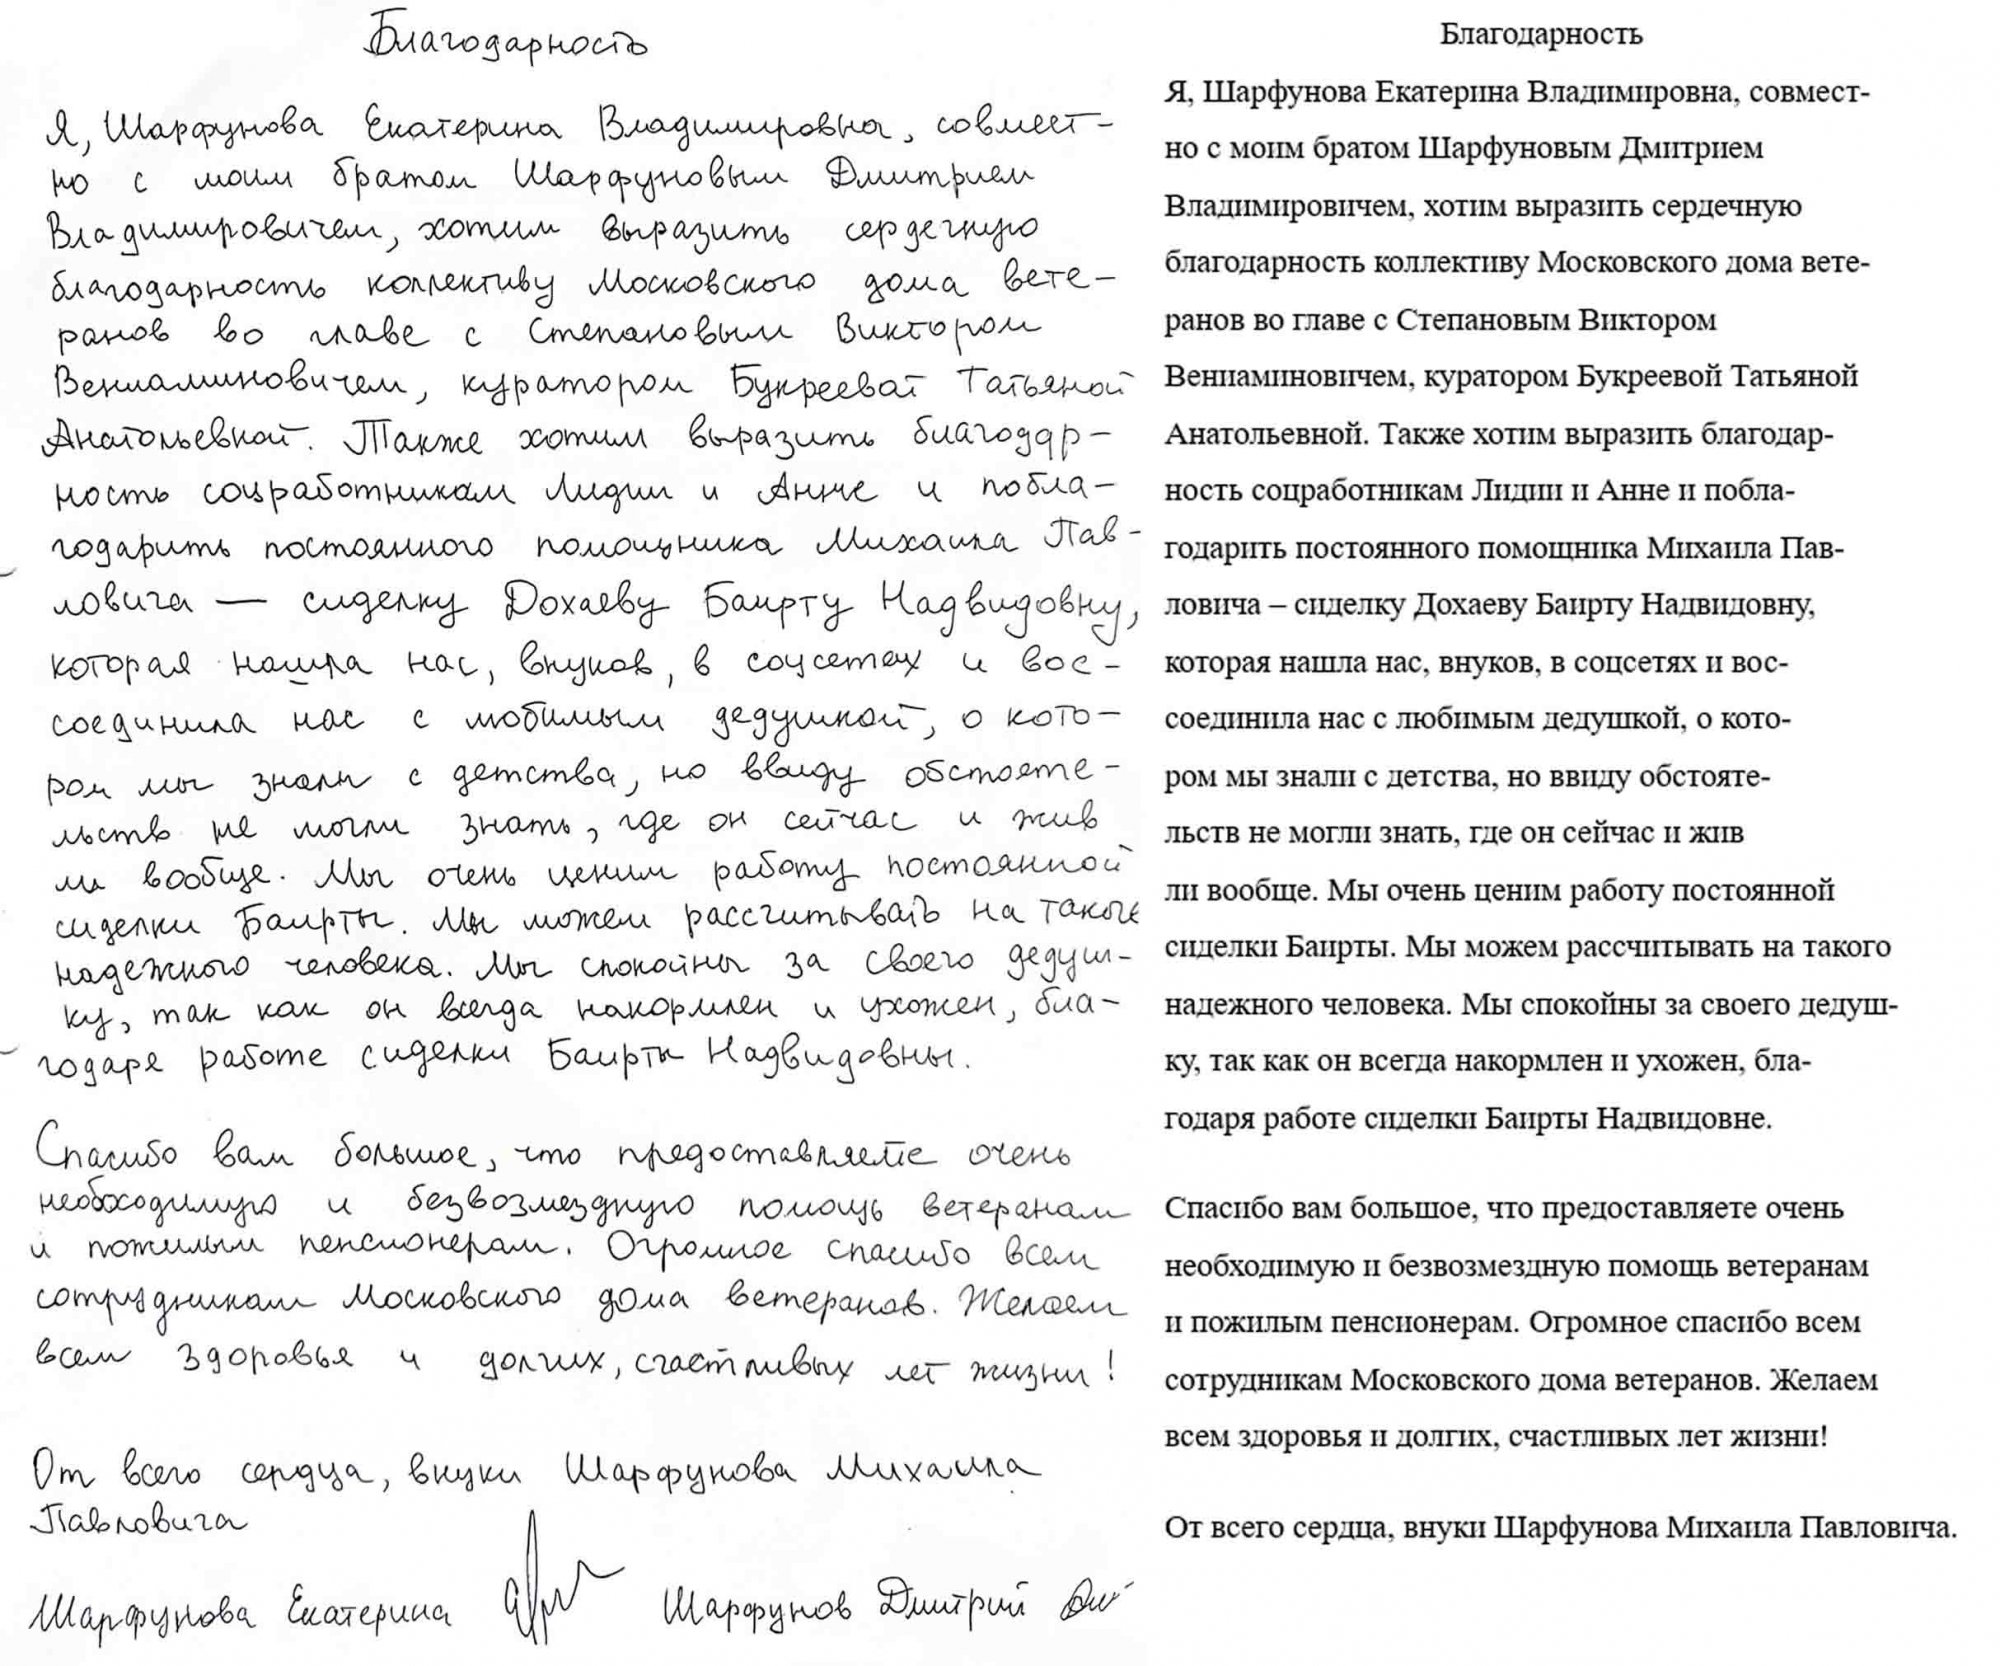 Благодарность
Я, Шарфунова Екатерина Владимировна, совмест-
но с моим братом Шарфуновым Дмитрием
Владимировичем, хотим выразить сердечную
благодарность коллективу Московского дома вете-
ранов во главе с Степановым Виктором
Вениаминовичем, куратором Букреевой Татьяной
Анатольевной. Также хотим выразить благодар-
ность соцработникам Лидии и Анне и побла-
годарить постоянного помощника Михаила Пав-
ловича — сиделку Дохаеву Баирту Надвидовну,
которая нашла нас, внуков, в соцсетях и вос-
соединила нас с любимым дедушкой, о кото-
ром мы знали с детства, но ввиду обстояте-
льств не могли знать, где он сейчас и жив
ли вообще. Мы очень ценим работу постоянной
сиделки Баирты. Мы можем рассчитывать на такого
надежного человека. Мы спокойны за своего дедуш-
ку, так как он всегда накормлен и ухожен, бла-
годаря работе сиделки Баирты Надвидовны.
Спасибо вам большое, что предоставляете очень
необходимую и безвозмездную помощь ветеранам
и пожилым пенсионерам. Огромное спасибо всем
сотрудникам Московского дома ветеранов. Желаем
всем здоровья и долгих, счастливых лет жизни!
От всего сердца, внуки Шарфунова Михаила
Павловича
Шарфунова Екатерина Шарфунов Дмитрий
Благодарность
Я, Шарфунова Екатерина Владимировна, совмест-
но с моим братом Шарфуновым Дмитрием
Владимировичем, хотим выразить сердечную
благодарность коллективу Московского дома вете-
ранов во главе с Степановым Виктором
Вениаминовичем, куратором Букреевой Татьяной
Анатольевной. Также хотим выразить благодар-
ность соцработникам Лидии и Анне и побла-
годарить постоянного помощника Михаила Пав-
ловича – сиделку Дохаеву Баирту Надвидовну,
которая нашла нас, внуков, в соцсетях и вос-
соединила нас с любимым дедушкой, о кото-
ром мы знали с детства, но ввиду обстояте-
льств не могли знать, где он сейчас и жив
ли вообще. Мы очень ценим работу постоянной
сиделки Баирты. Мы можем рассчитывать на такого
надежного человека. Мы спокойны за своего дедуш-
ку, так как он всегда накормлен и ухожен, бла-
годаря работе сиделки Баирты Надвидовне.
Спасибо вам большое, что предоставляете очень
необходимую и безвозмездную помощь ветеранам
и пожилым пенсионерам. Огромное спасибо всем
сотрудникам Московского дома ветеранов. Желаем
всем здоровья и долгих, счастливых лет жизни!
От всего сердца, внуки Шарфунова Михаила Павловича.